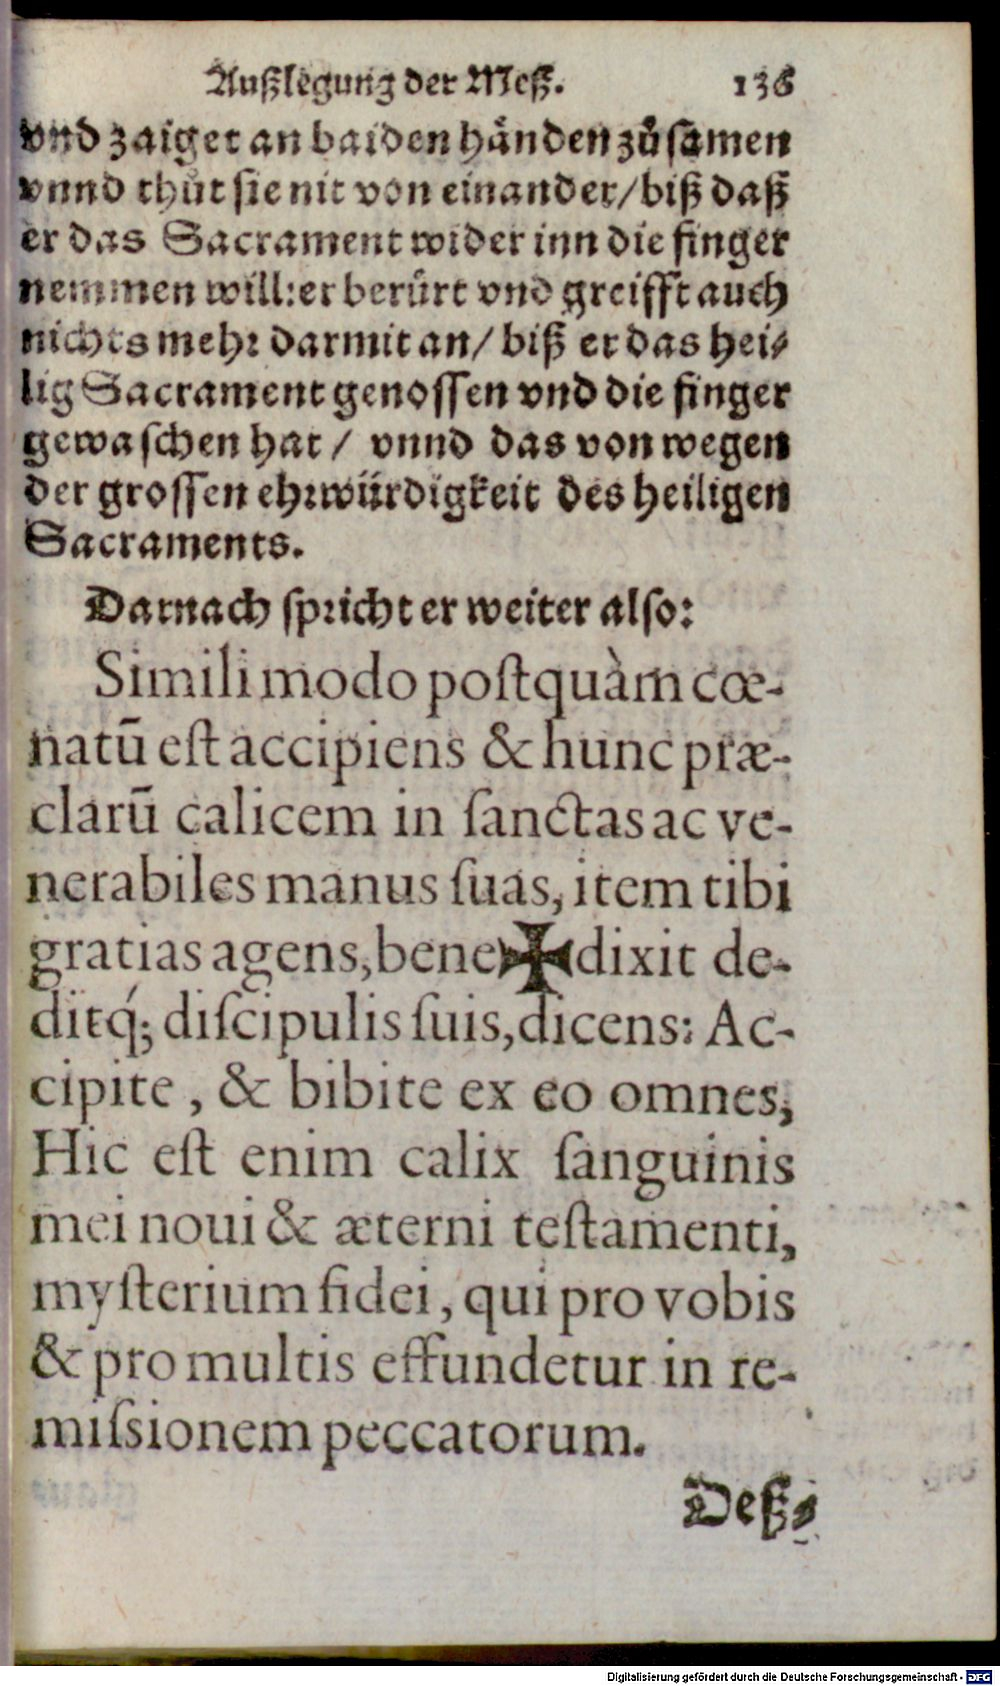 Außlegung der Meß. 136
vnd zaiget an baiden händen zůsamen
vnnd thůt sie nit von einander/biß daß
er das Sacrament wider inn die finger
nemmen will:er berürt vnd greifft auch
nichts mehr darmit an/ biß er das hei-
lig Sacrament genossen vnd die finger
gewaschen hat/ vnnd das von wegen
der grossen ehrwürdigkeit des heiligen
Sacraments.
Darnach spricht er weiter also:
Simili modo postquàm cœ-
natū est accipiens & hunc præ-
clarū calicem in sanctas ac ve-
nerabiles manus suas, item tibi
gratias agens, bene✠dixit de-
ditq́; discipulis suis, dicens: Ac-
cipite, & bibite ex eo omnes,
Hic est enim calix sanguinis
mei noui & æterni testamenti,
mysterium fidei, qui pro vobis
& pro multis effundetur in re-
missionem peccatorum.
Deß-
Digitalisierung gefördert durch die Deutsche Forschungsgemeinschaft - DFG